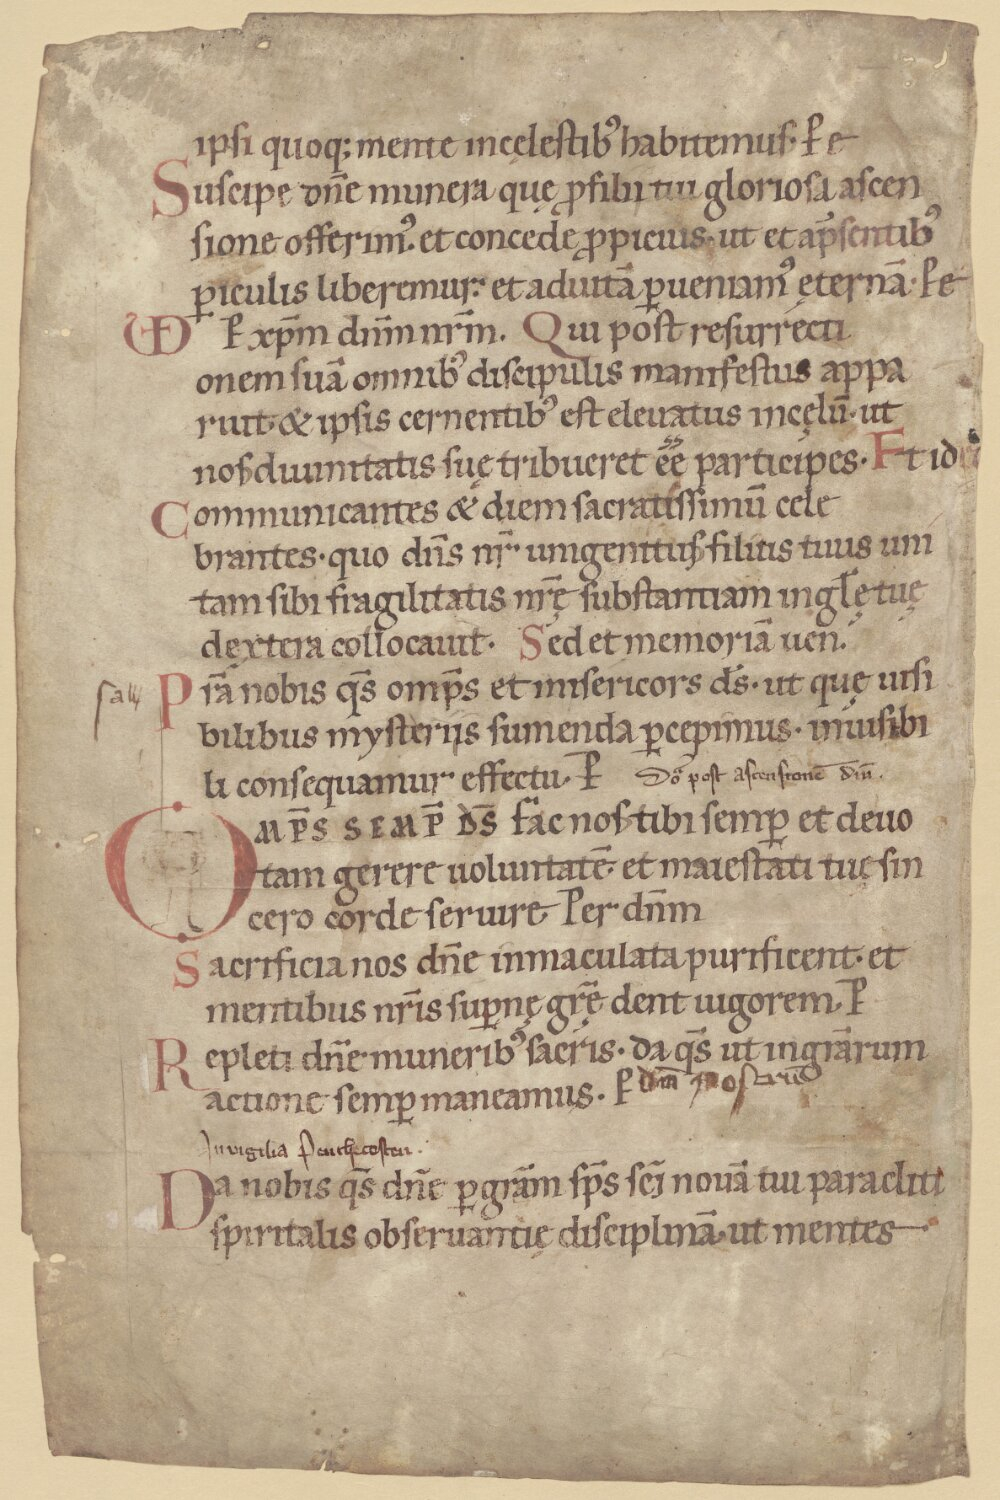 ipsi quoq; mente in cęlestib' habitemus. Pe
Suscipe dn̄e munera quę ꝓ filii tui gloriosa ascen
sione offerim'. et concede ꝓpicius. ut et a p̄sentib'
ꝑiculis liberemur. et ad uitā ꝑueniam' ęternā. Pe
VD P xp̄m dn̄m nr̄m. Qui post resurrecti
onem suā omnib' discipulis manifestus appa
ruit & ipsis cernentib' est eleuatus in cęlū. ut
nos diuinitatis suę tribueret eē participes. Et id
Communicantes & diem sacratissimū cele
brantes. quo dn̄s nr̄ unigenitus filius tuus uni
tam sibi fragilitatis nr̄ę substantiam in gl̄ę tuę
dęxtera collocauit. Sed et memoriā uen.
Pr̄a nobis q̄s omp̄s et misericors d̄s. ut quę uisi
bilibus mysteriis sumenda ꝑcepimus. inuisibi
li consequamur effectu. P Do post ascensionē dn̄i.
OMP̄S SEMP̄ D̄S fac nos tibi semꝑ et deuo
tam gerere uoluntatē. et maiestati tuę sin
cero corde seruire. Per dn̄m
Sacrificia nos dn̄e inmaculata purificent. et
mentibus nr̄is suꝑnę gr̄ę dent uigorem. P
Repleti dn̄e munerib' sacris. da q̄s ut in gr̄arum
actione semꝑ maneamus. P dn̄m nostrum
In vigilia Penthecosten.
Da nobis q̄s dn̄e ꝑ gr̄am sp̄s sc̄i nouā tui paracliti
spiritalis obseruantię disciplinā. ut mentes